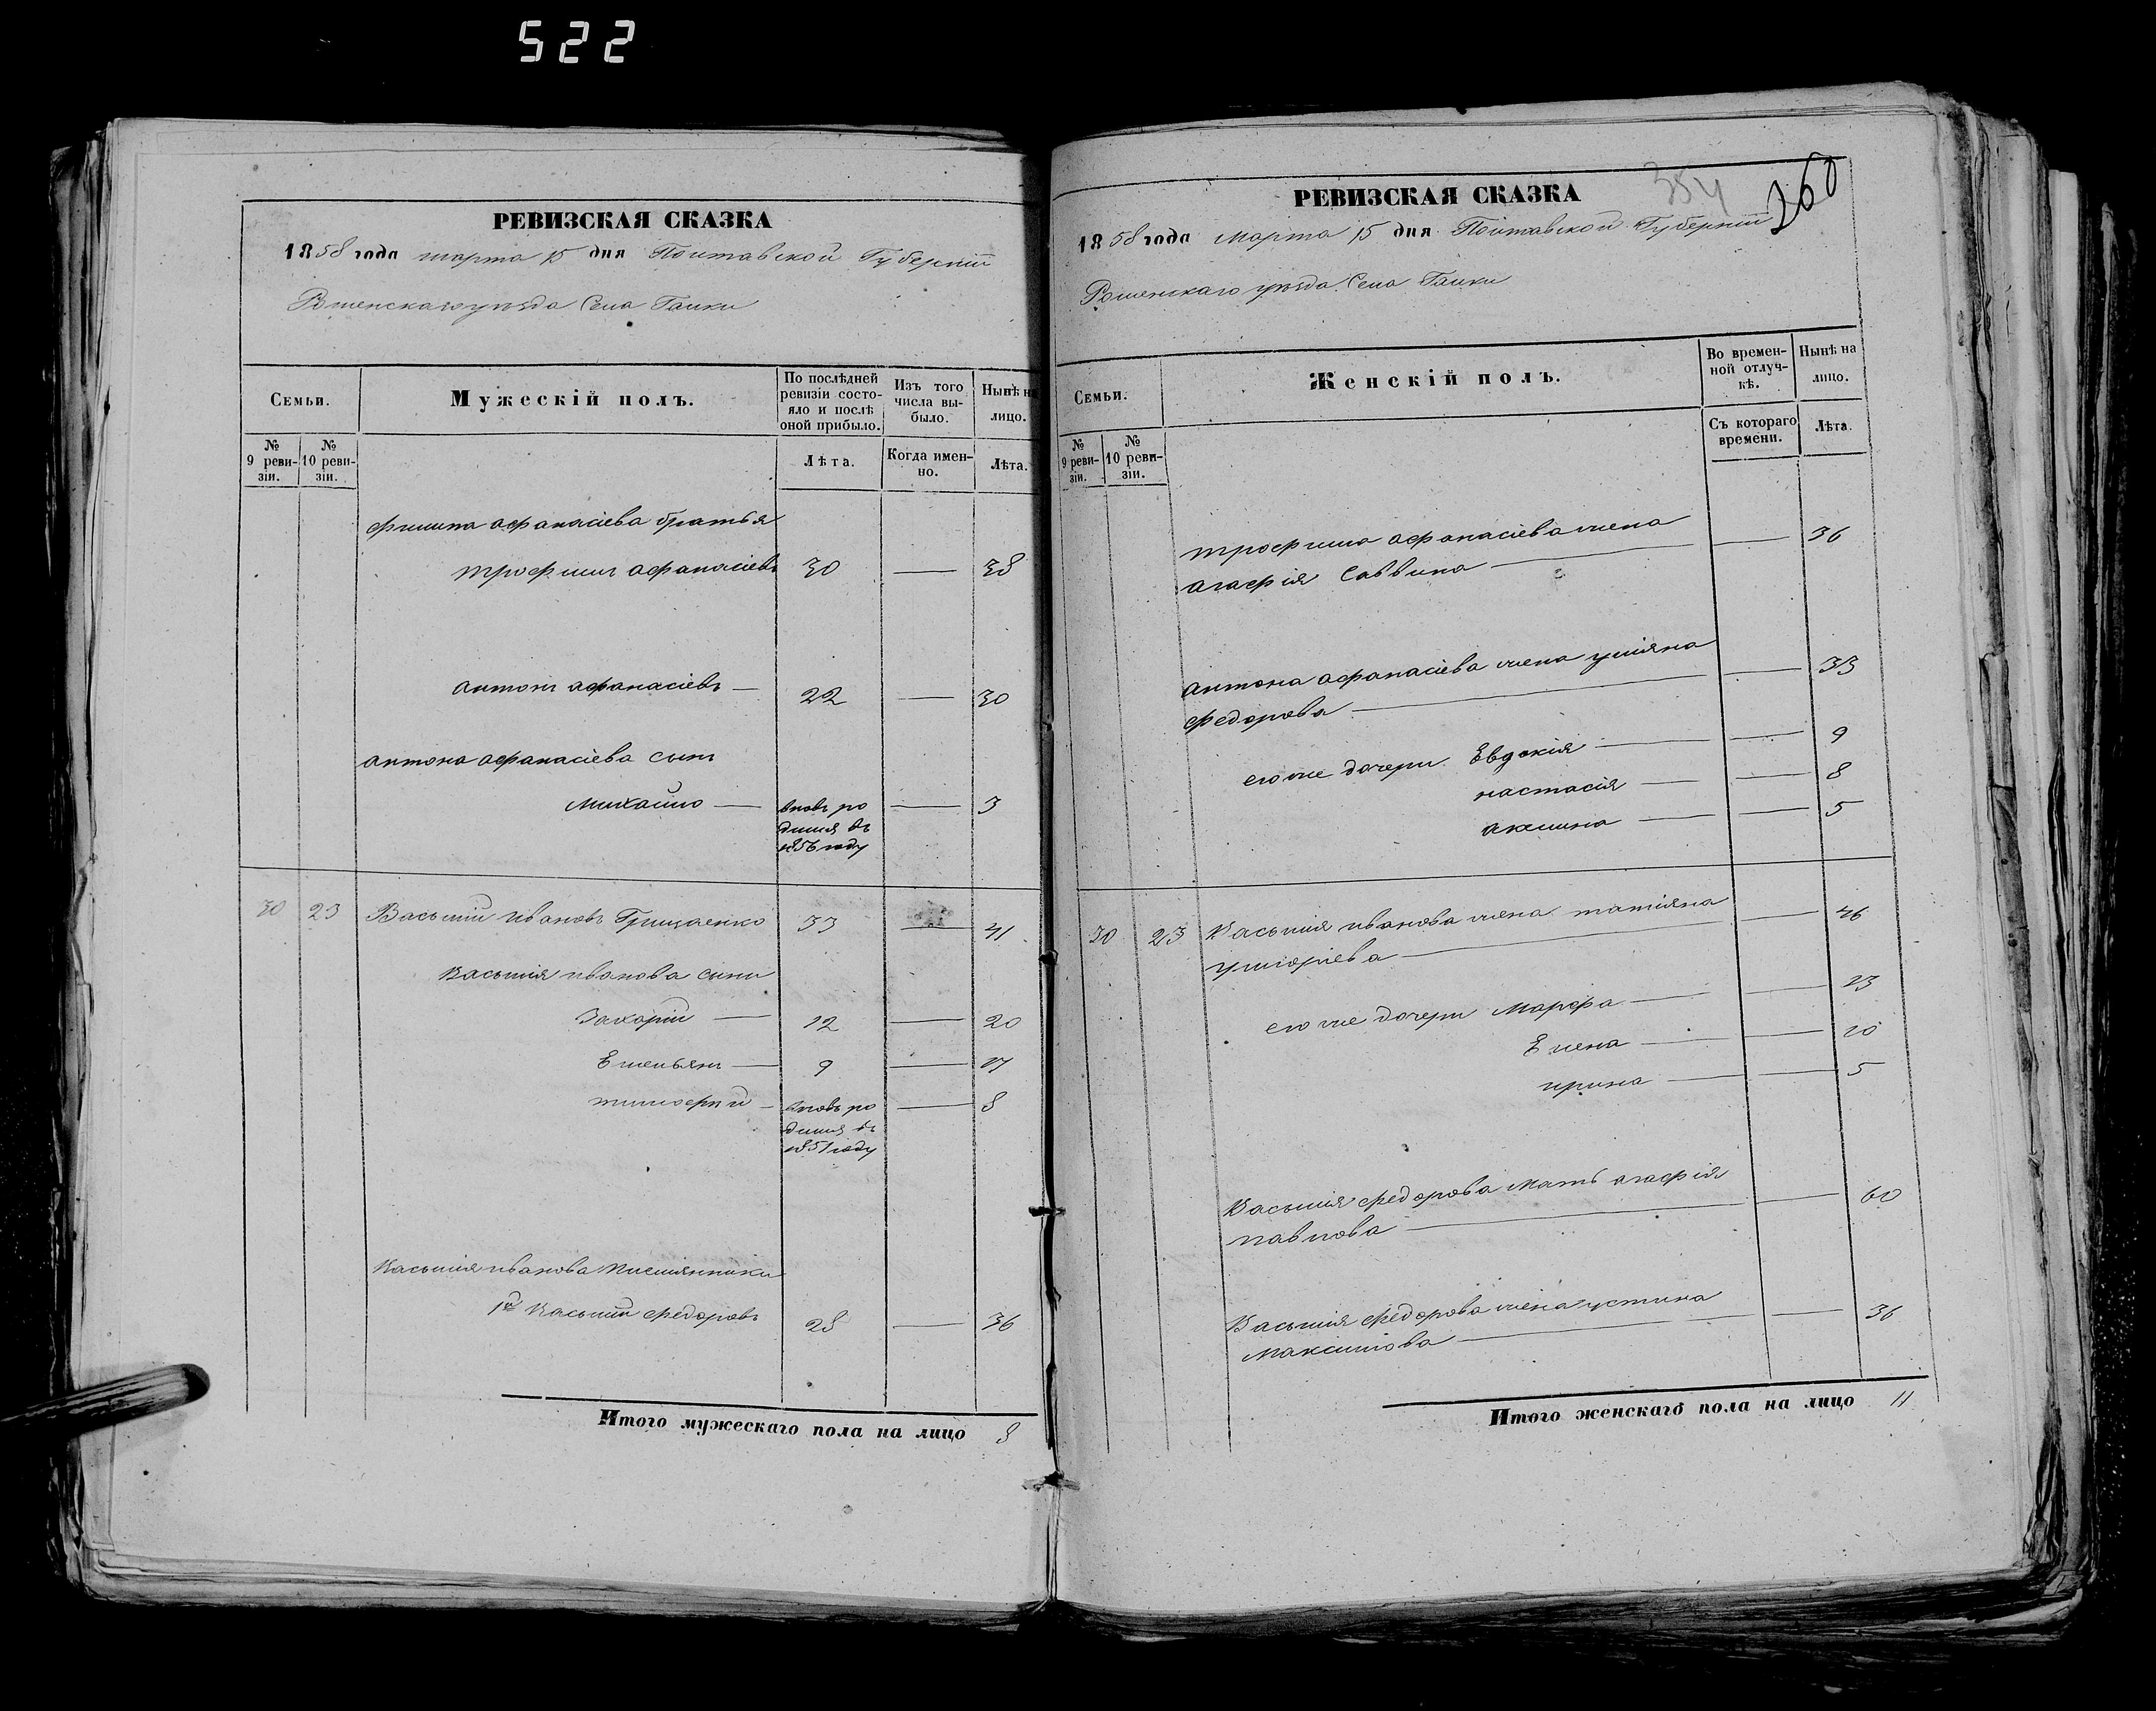 522
РЕВИЗСКАЯ СКАЗКА
1858 года марта 15 дня Полтавской Губерніи
Роменскаго уѣзда Села Галки
Семьи.
Мужескій полъ.
По послѣдней ревизіи состояло и послѣ оной прибыло.
Изъ того числа выбыло.
Нынѣ на лицо.
№ 9 ревизіи.
№ 10 ревизіи.
Лѣта.
Когда именно.
Лѣта.
Филипа афанасіева братья
трофим афанасіевъ 30 — 38
антонъ афанасіевъ — 22 — 30
антона афанасіева сынъ
Михайло — вновь ро — 3
дился въ
1856 году
30 23 Василій Ивановъ Грицаенко 33 — 41
Василія иванова сыни
Захарій — 12 — 20
Емельян — 9 — 17
тимофей — вновь ро — 8
дился въ
1851 году
Василія иванова племянники
1й Василій федоровъ 28 — 36
Итого мужескаго пола на лицо 8
354 360
РЕВИЗСКАЯ СКАЗКА
1858 года Марта 15 дня Полтавской Губерніи
Роменскаго уѣзда Села Галки
Семьи.
Женскій полъ.
Во временной отлучкѣ.
Нынѣ на лицо.
№ 9 ревизіи.
№ 10 ревизіи.
Съ котораго времени.
Лѣта.
трофима афанасіева жена
агафія Саввина — — 36
антона афанасіева жена улияна
федорова — — 33
его же дочери Евдокія — — 9
настасія — — 8
акилина — — 5
30 23 Василія иванова жена татіяна
григоріева — — 46
его же дочери Марфа — — 13
Елена — — 10
ирина — — 5
Василія федорова мать агафія
павлова — — 60
Василія федорова жена устина
Максимова — — 36
Итого женскаго пола на лицо 11